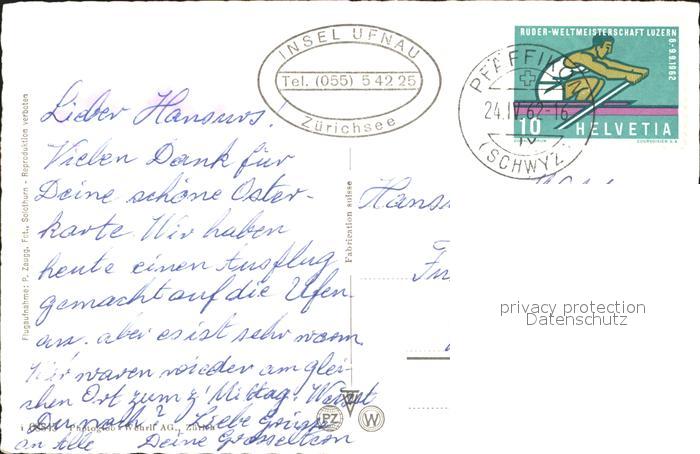 INSEL UFNAU
Tel. (055) 5 42 25
Zürichsee
RUDER-WELTMEISTERSCHAFT LUZERN
6-9.9.1962
PFÄFFIKON
24.IV.62-16
(SCHWYZ)
10 HELVETIA
COURVOISIER S.A.
Lieber Hansurs!
Vielen Dank für
Deine schöne Oster-
karte. Wir haben
heute einen Ausflug
gemacht auf die Ufen-
au. aber es ist sehr warm
Wir waren wieder am glei-
chen Ort zum z'Mittag. Weisst
Du noch? Liebe Grüsse
an Alle Deine Grosseltern
Hans
Flugaufnahme: P. Zaugg, Fot., Solothurn - Reproduktion verboten
Fabrication suisse
Photoglob-Wehrli AG., Zürich
PZ
W
privacy protection
Datenschutz